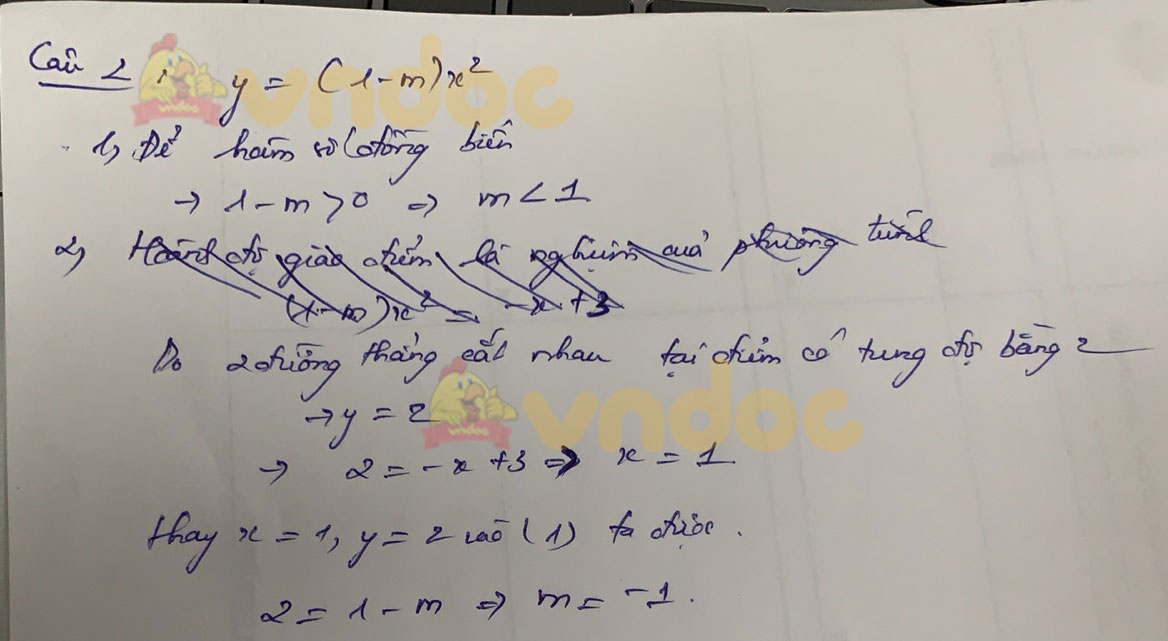 Câu 2: y = (1-m)x²
1, Để hàm số đồng biến
→ 1-m > 0 ⇒ m < 1
2, Hoành độ giao điểm là nghiệm của phương trình
(1-m)x² = -x+3
Do 2 đường thẳng cắt nhau tại điểm có tung độ bằng 2
→ y = 2
→ 2 = -x+3 ⇒ x = 1
thay x = 1, y = 2 vào (1) ta được.
2 = 1-m ⇒ m = -1.
vndoc
vndoc
vndoc
vndoc